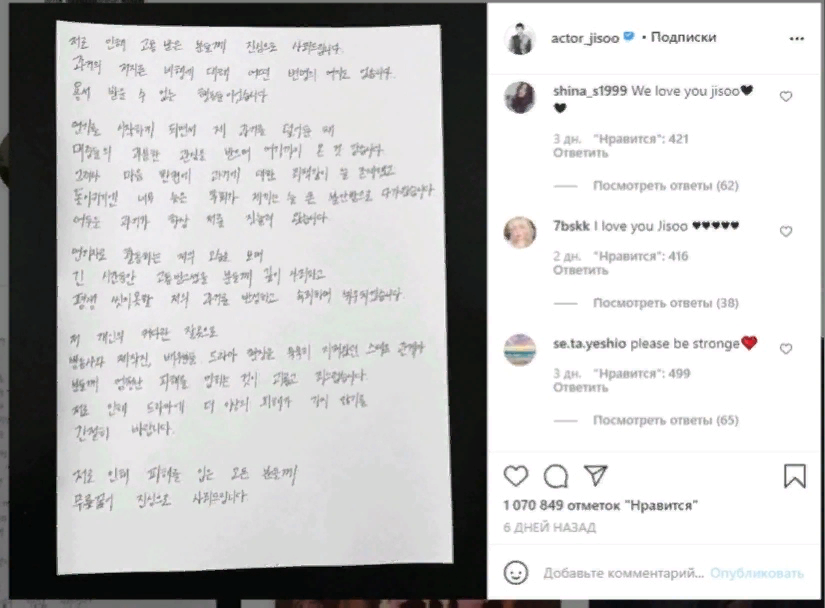 저로 인해 고통 받은 분들께 진심으로 사죄드립니다.
과거의 저지른 비행에 대해 어떤 변명의 여지도 없습니다.
용서 받을 수 없는 행동들이었습니다
연기를 시작하게 되면서 제 과거를 덮어둔 채
대중들의 과분한 관심을 받으며 여기까지 온 것 같습니다.
그러나 마음 한켠에 과거에 대한 죄책감이 늘 존재했고
돌이키기엔 너무 늦은 후회가 저에게는 늘 큰 불안함으로 다가왔습니다
어두운 과거가 항상 저를 짓눌러 왔습니다.
연기자로 활동하는 저의 모습을 보며
긴 시간동안 고통받으셨을 분들께 깊이 속죄하고
평생 씻지못할 저의 과거를 반성하고 뉘우치겠습니다.
저 개인의 커다란 잘못으로
방송사와 제작진, 배우들, 드라마 현장을 묵묵히 지켜왔던 스태프 관계자
분들께 엄청난 피해를 입히는 것이 괴롭고 죄스럽습니다.
저로 인해 드라마에 더 이상의 피해가 가지 않기를
간절히 바랍니다.
저로 인해 피해를 입은 모든 분들께
무릎꿇어 진심으로 사죄드립니다
actor_jisoo • Подписки
shina_s1999 We love you jisoo🖤
🖤
3 дн. "Нравится": 421
Ответить
Посмотреть ответы (62)
7bskk I love you Jisoo ♥♥♥♥♥
2 дн. "Нравится": 416
Ответить
Посмотреть ответы (38)
se.ta.yeshio please be stronge❤️
3 дн. "Нравится": 499
Ответить
Посмотреть ответы (65)
1 070 849 отметок "Нравится"
6 ДНЕЙ НАЗАД
Добавьте комментарий... Опубликовать